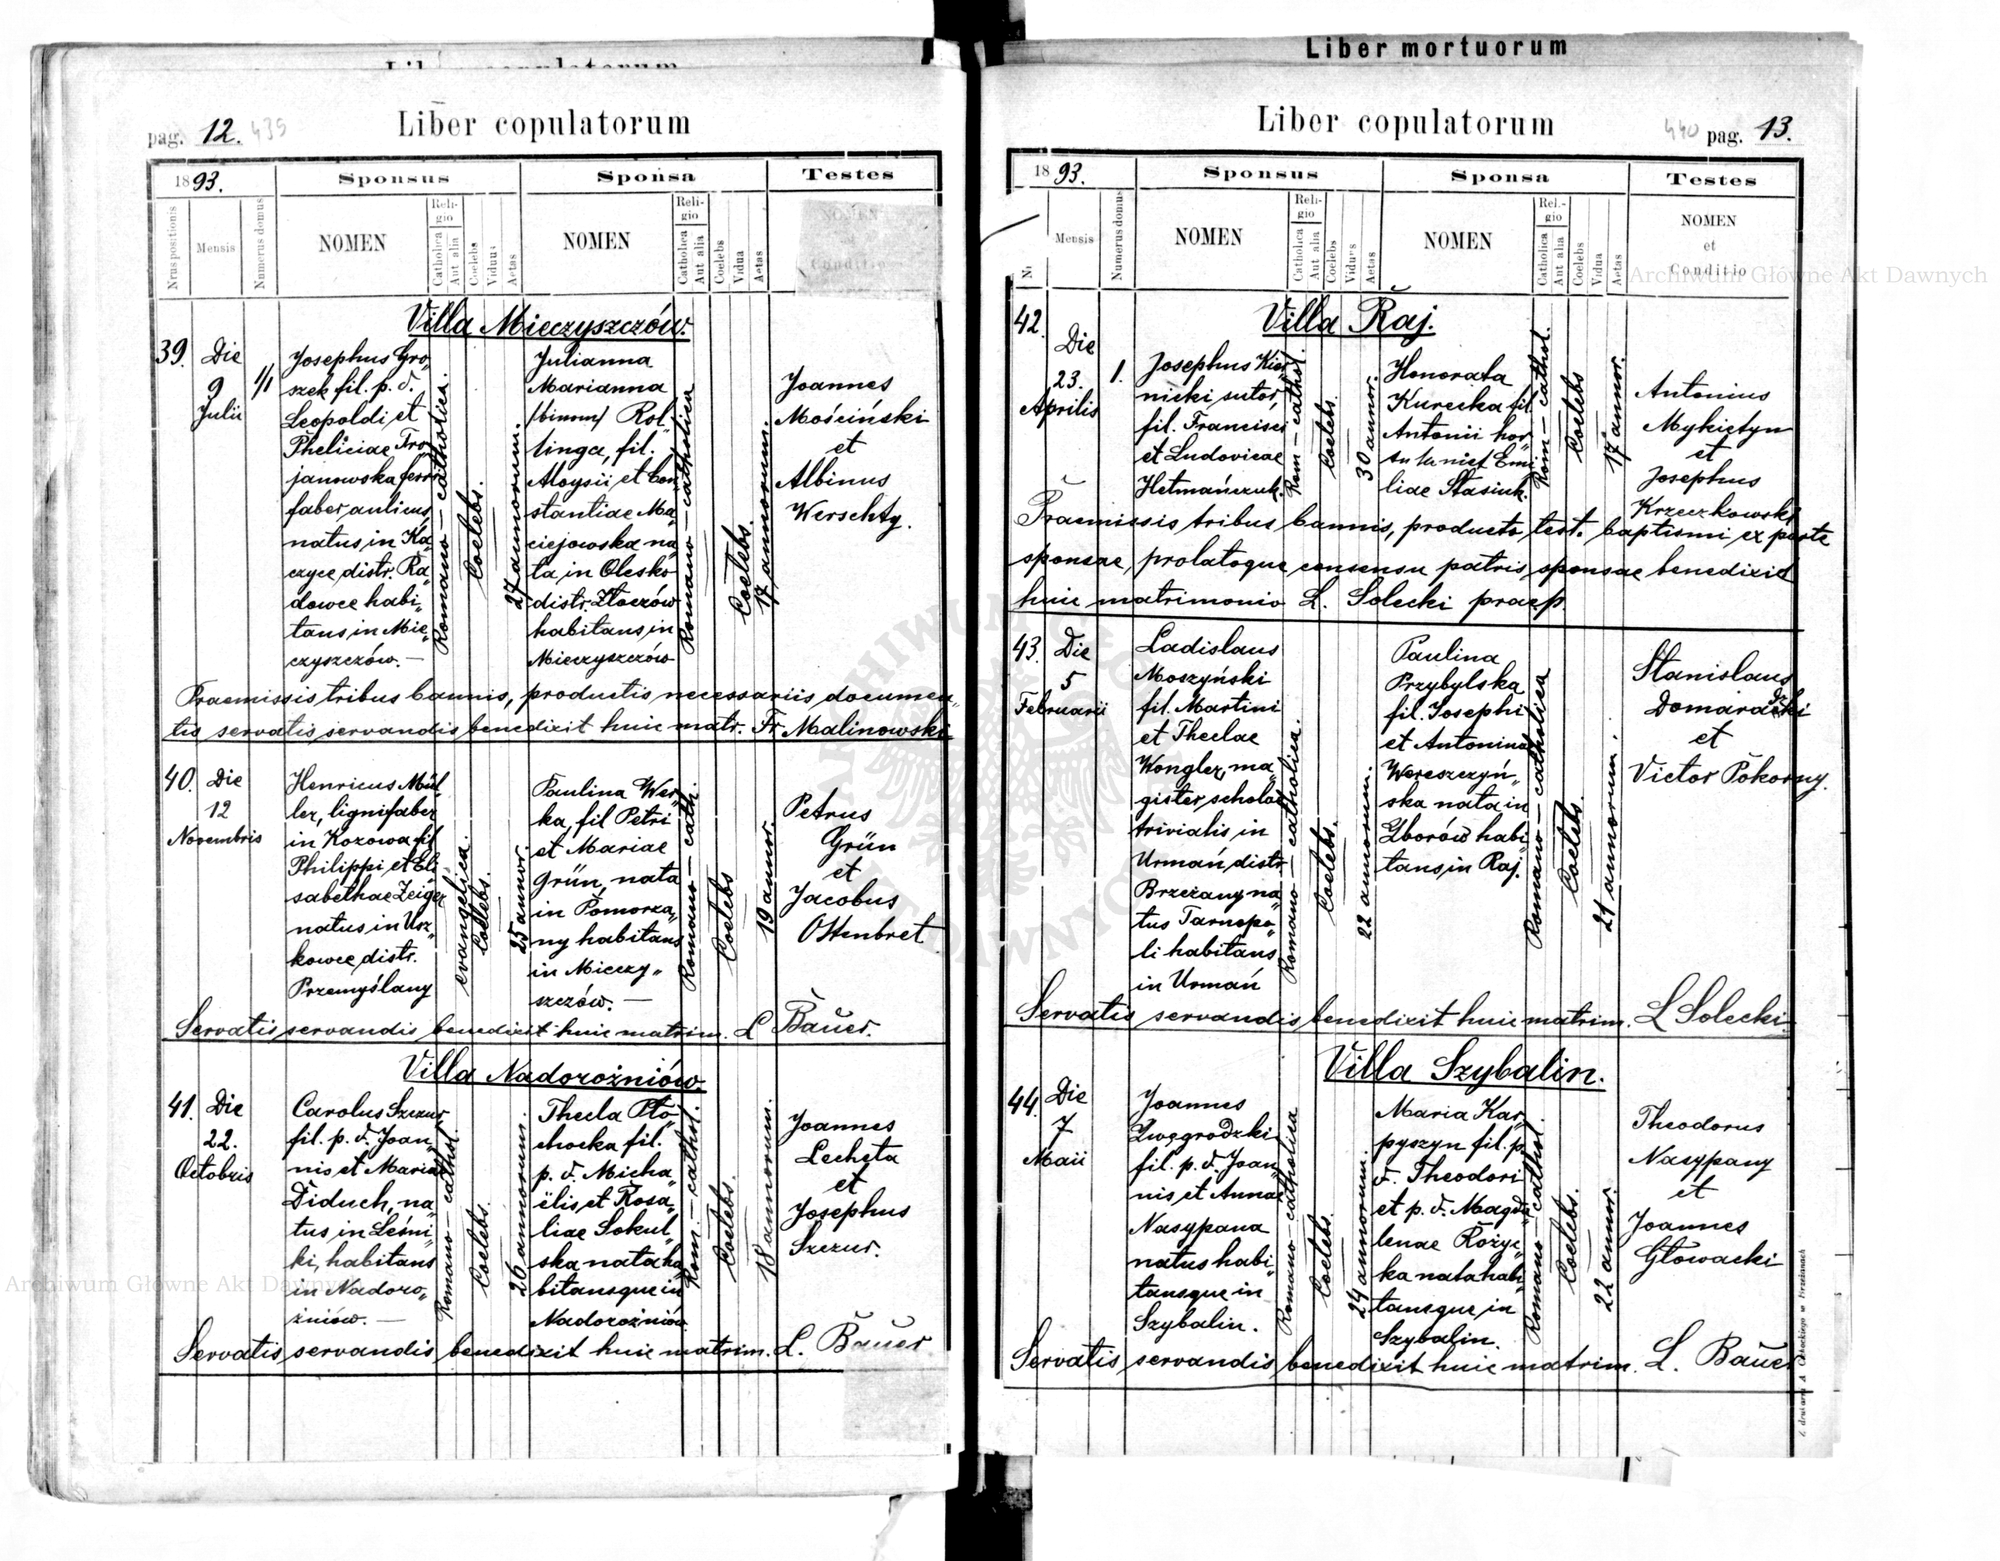 Liber mortuorum
pag. 12. 439
Liber copulatorum
1893.
Sponsus
Sponsa
Testes
Nrus positionis
Mensis
Numerus domus
NOMEN
Religio
Catholica
Aut alia
Coelebs
Viduus
Aetas
NOMEN
Religio
Catholica
Aut alia
Coelebs
Vidua
Aetas
NOMEN
et
Conditio
Villa Mieczyszczów.
39. Die
9
Julii
1/1
Josephus Gro„
szek fil. p. d.
Leopoldi et
Pheliciae Tro„
janowska ferri
faber aulicus
natus in Ka„
czyce distr. Ra„
dowce habi„
tans in Mie„
czyszczów. —
Romano — catholica.
Coelebs.
27 annorum.
Julianna
Marianna
/binom/ Rol„
linga, fil.
Aloysii et Con„
stantiae Ma„
ciejowska na„
ta in Olesko
distr. Złoczów
habitans in
Mieczyszczów
Romano — catholica
Coelebs.
17 annorum.
Joannes
Mościński
et
Albinus
Werschty.
Praemissis tribus bannis, productis necessariis documen„
tis servatis servandis benedixit huic matr. Fr. Malinowski
40. Die
12
Novembris
Henricus Mül„
ler, lignifaber
in Kozowa fil
Philippi et Eli
sabethae Zeiger
natus in Usz„
kowce distr.
Przemyślany
evangelica.
Coelebs.
25 annor.
Paulina Wer„
ka, fil Petri
et Mariae
Grün, nata
in Pomorza„
ny habitans
in Mieczy„
szczów. —
Romano — cath.
Coelebs
19 annor.
Petrus
Grün
et
Jacobus
Ottenbret
Servatis servandis benedixit huic matrim. L Bauer.
Villa Nadorożniów.
41. Die
22.
Octobris
Carolus Szczur
fil. p. d. Joan„
nis et Maria
Diduch, na„
tus in Leśni„
ki, habitans
in Nadoro„
żniów. —
Romano — cathol.
Coelebs.
26 annorum.
Thecla Pło„
chocka fil.
p. d. Micha„
ëlis et Rosa„
liae Sokul„
ska nata ha„
bitansque in
Nadorożniów.
Rom. — cathol.
Coelebs.
18 annorum.
Joannes
Lecheta
et
Josephus
Szczur.
Servatis servandis benedixit huic matrim. L. Bauer
Liber copulatorum
440 pag. 13.
1893.
Sponsus
Sponsa
Testes
Nr
Mensis
Numerus domus
NOMEN
Religio
Catholica
Aut alia
Coelebs
Viduus
Aetas
NOMEN
Religio
Catholica
Aut alia
Coelebs
Vidua
Aetas
NOMEN
et
Conditio
Villa Raj.
42. Die
23.
Aprilis
1.
Josephus Kier„
nicki sutor,
fil. Francisci
et Ludovicae
Hetmańczuk.
Rom — cathol.
Coelebs.
30 annor.
Honorata
Kurecka fil.
Antonii hor„
tulani et Emi„
liae Stasiuk.
Rom — cathol.
Coelebs
17 annor.
Antonius
Mykietyn
et
Josephus
Krzeczkowski
Praemissis tribus bannis, producto test. baptismi ex parte
sponsae, prolatoque consensu patris sponsae benedixit
huic matrimonio L. Solecki praep
43. Die
5
Februarii
Ladislaus
Moszyński
fil. Martini
et Theclae
Wongler, ma„
gister scholae
trivialis in
Urmań distr.
Brzeżany na„
tus Tarnopo„
li habitans
in Urmań
Romano — catholica.
Coelebs.
22 annorum.
Paulina
Przybylska
fil. Josephi
et Antonina
Wereszczyń„
ska nata in
Zborów habi„
tans in Raj.
Romano — catholica
Coelebs.
21 annorum.
Stanislaus
Domaradzki
et
Victor Pokorny.
Servatis servandis benedixit huic matrim. L Solecki
Villa Szybalin.
44. Die
7
Maii
Joannes
Zwęgrodzki
fil. p. d. Joan„
nis et Annae
Nasypana
natus habi„
tansque in
Szybalin.
Romano — catholica
Coelebs.
24 annorum.
Maria Kar„
pyszyn fil. p.
d. Theodori
et p. d. Magda„
lenae Rożyc„
ka nata habi„
tansque in
Szybalin.
Romano — cathol.
Coelebs.
22 annor.
Theodorus
Nasypany
et
Joannes
Głowacki
Servatis servandis benedixit huic matrim. L. Bauer
Archiwum Główne Akt Dawnych
Archiwum Główne Akt Dawnych